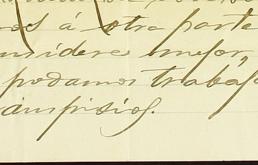 nos á otra parte
nsidere mejor
podamos trabaja
auspicios.